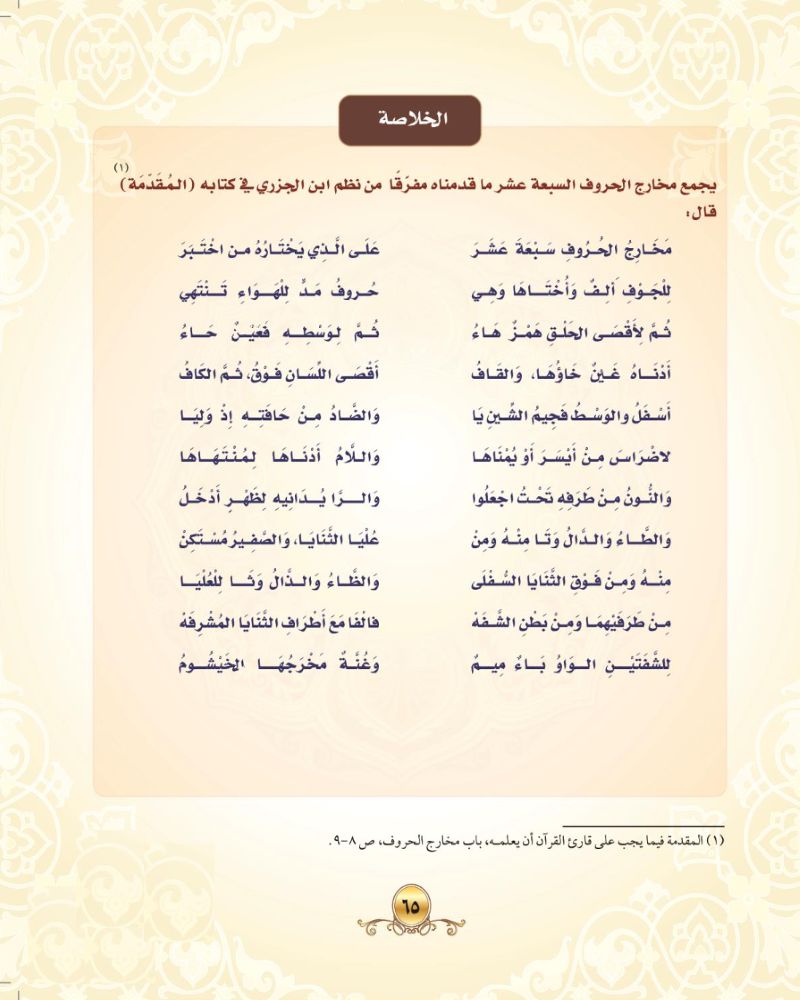 الخلاصة
يجمع مخارج الحروف السبعة عشر ما قدمناه مفرّقًا من نظم ابن الجزري في كتابه (المُقَدِّمَة) (١)
قال:
مَخَارِجُ الحُرُوفِ سَبْعَةَ عَشَرَ عَلَى الَّذِي يَخْتَارُهُ مِن اخْتَبَرَ
لِلْجَوْفِ أَلِفٌ وَأُخْتَاهَا وَهِي حُروفُ مَدٍّ لِلْهَوَاءِ تَنْتَهِي
ثُمَّ لِأَقْصَى الحَلْقِ هَمْزٌ هَاءُ ثُمَّ لِوَسْطِهِ فَعَيْنٌ حَاءُ
أَدْنَاهُ غَينٌ خَاؤُهَا، وَالقَافُ أَقْصَى اللِّسَانِ فَوْقُ، ثُمَّ الكَافُ
أَسْفَلُ والوَسْطُ فَجِيمُ الشِّينِ يَا وَالضَّادُ مِنْ حَافَتِهِ إِذْ وَلِيَا
لاضْرَاسَ مِنْ أَيْسَرَ أَوْ يُمْنَاهَا وَاللَّامُ أَدْنَاهَا لِمُنْتَهَاهَا
وَالنُّونُ مِنْ طَرَفِهِ تَحْتُ اجْعَلُوا وَالرَّا يُدَانِيهِ لِظَهْرٍ أَدْخَلُ
وَالطَّاءُ وَالدَّالُ وَتَا مِنْهُ وَمِنْ عُلْيَا الثَّنَايَا، وَالصَّفِيرُ مُسْتَكِنْ
مِنْهُ وَمِنْ فَوْقِ الثَّنَايَا السُّفْلَى وَالظَّاءُ وَالذَّالُ وَثَا لِلْعُلْيَا
مِنْ طَرَفَيْهِمَا وَمِنْ بَطْنِ الشَّفَهْ فالفَا مَعَ أَطْرَافِ الثَّنَايَا المُشْرِفَهْ
لِلشَّفَتَيْنِ الوَاوُ بَاءٌ مِيمٌ وَغُنَّةٌ مَخْرَجُهَا الخَيْشُومُ
(١) المقدمة فيما يجب على قارئ القرآن أن يعلمه، باب مخارج الحروف، ص ٨-٩.
٦٥